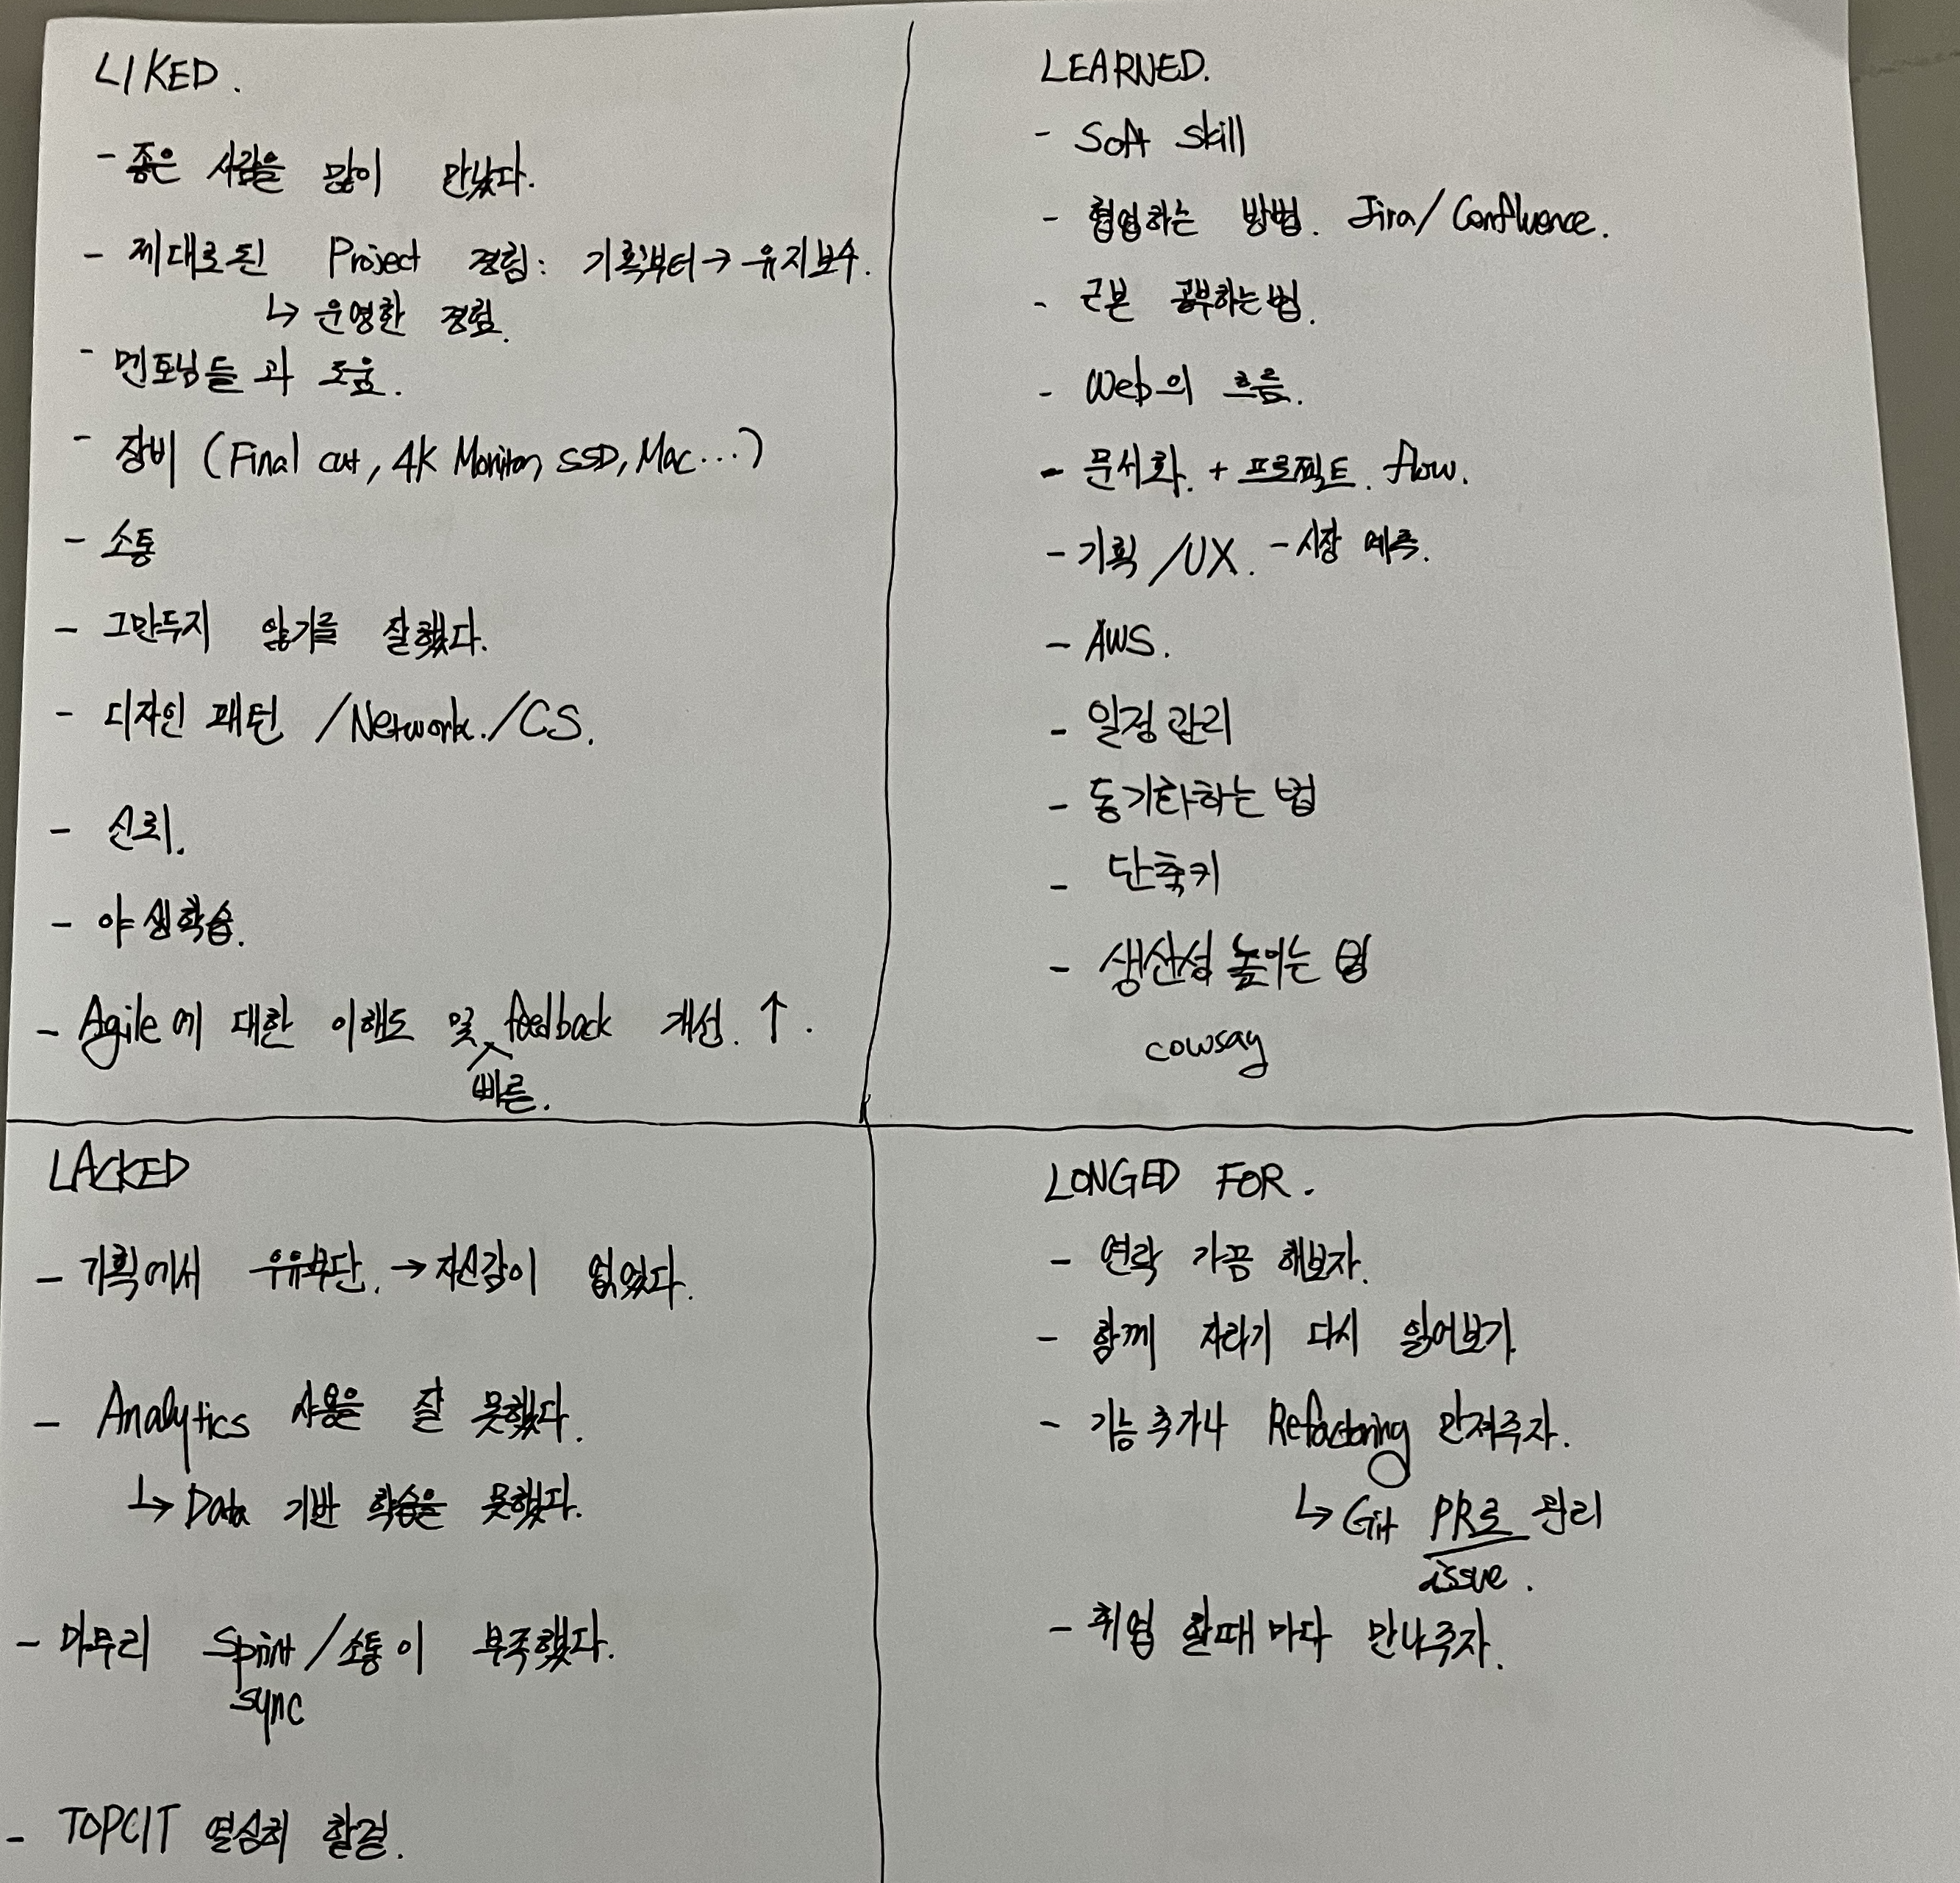 LIKED.
- 좋은 사람을 많이 만났다.
- 제대로된 Project 경험: 기획부터 → 유지보수.
↳ 운영한 경험.
- 멘토님들과 도움.
- 장비 (Final cut, 4K Monitor, SSD, Mac...)
- 소통
- 그만두지 않기를 잘했다.
- 디자인 패턴 /Network./CS.
- 신뢰.
- 야생학습.
- Agile에 대한 이해도 및 feedback 개선. ↑.
빠른.
LEARNED.
- Soft skill
- 협업하는 방법. Jira/Confluence.
- 근본 공부하는 법.
- Web의 흐름.
- 문서화. + 프로젝트. flow.
- 기획 /UX. - 시장 예측.
- AWS.
- 일정관리
- 동기화하는 법
- 단축키
- 생산성 높이는 법
cowsay
LACKED
- 기획에서 우유부단. → 자신감이 없었다.
- Analytics 사용을 잘 못했다.
↳ Data 기반 학습을 못했다.
- 마무리 Sprint/소통이 부족했다.
sync
- TOPCIT 열심히 할걸.
LONGED FOR.
- 연락 가끔 해보자.
- 함께 자라기 다시 읽어보기
- 기능추가나 Refactoring 만져주자.
↳ Git PR로 관리
issue.
- 취업 할때마다 만나주자.